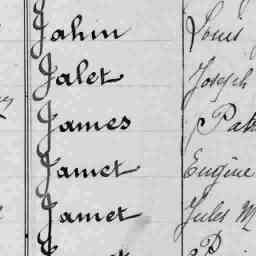 Jahin Louis
Jalet Joseph
James Pat
Jamet Eugène
Jamet Jules M